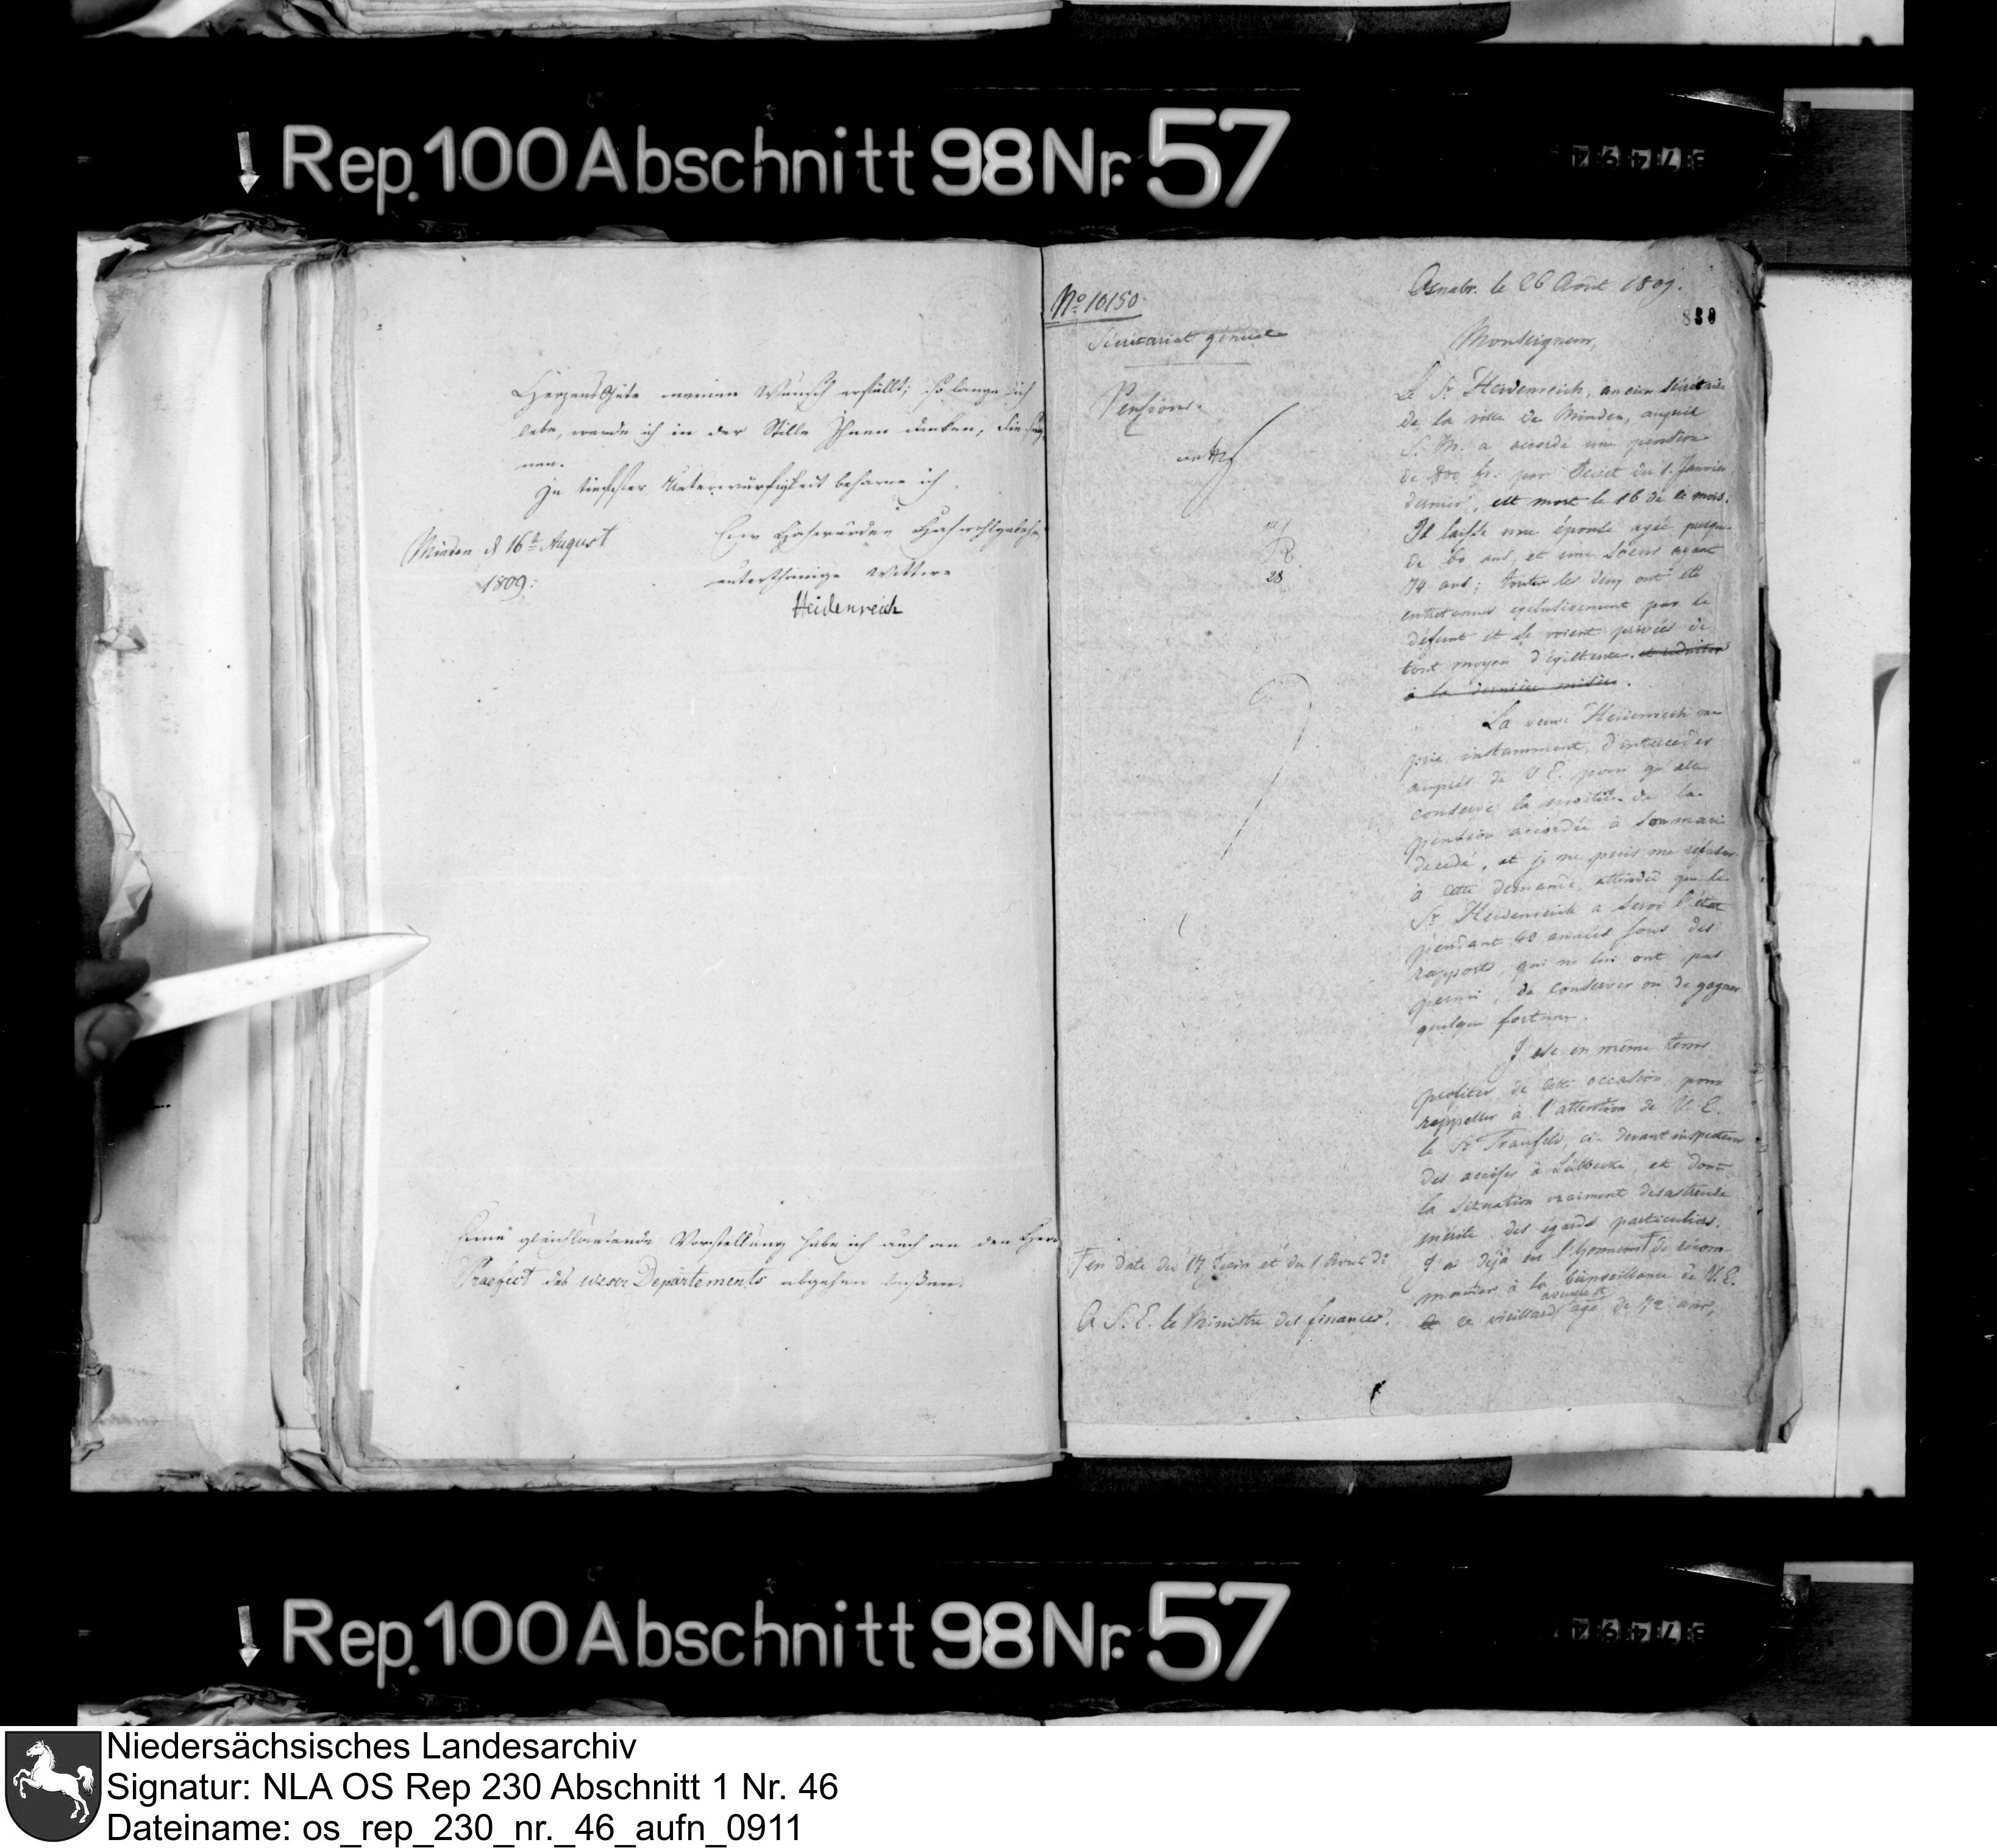 Rep. 100 Abschnitt 98 Nr. 57
Herzens Güte meinen Wunsch erfüllt; so lange ich
lebe, werde ich in der Stille Ihnen danken, Sie seg-
nen.
In tiefster Unterwürfigkeit beharre ich
Minden d 16t August
1809:
Euer Hochwürden Hochwohlgeboren
unterthänige Wittwe
Heidenreich
Eine gleichlautende Vorstellung habe ich auch an den Herrn
Praefect des weser Departements abgehen laßen.
No 10150
Sécrétariat général
Pensions.
28
Osnabr. le 26 Août 1809.
830
Monseigneur,
Le Sr. Heidenreich, ancien sécrétaire
de la ville de Minden, auquel
S. M. a accordé une pension
de 800 fr. par Décret du 1. Janvier
dernier, est mort le 16 de ce mois.
Il laisse une épouse agée presque
de 60 ans, et une soeur ayant
74 ans; toutes les deux ont été
entretenues exclusivement par le
défunt et se voient privées de
tout moyen d'existence. et réduites
à la dernière misère.
La veuve Heidenreich me
prie instamment, d'intercéder
auprès de V. E. pour qu'elle
conserve la moitié de la
pension accordée à son mari
decedé, et je ne puis me refuser
à cette demande, attendu que le
Sr. Heidenreich a servi l'état
pendant 40 années sous des
rapports, qui ne lui ont pas
permi, de conserver ou de gagner
quelque fortune.
J'ose en même tems
profiter de cette occasion, pour
rappeller à l'attention de V. E.
le Sr. Traufeld, ci-devant inspecteur
des accises à Lübbecke, et dont
la situation vraiment désastreuse
mérite des égards particuliers.
J'ai déjà eu l'honneur † de recom-
mander à la bienveillance de V. E.
ce vieillard agé de 72 ans,
† en date du 17 Juin et du 1 Aout d°
A S. E. le Ministre des finances.
Rep. 100 Abschnitt 98 Nr. 57
Niedersächsisches Landesarchiv
Signatur: NLA OS Rep 230 Abschnitt 1 Nr. 46
Dateiname: os_rep_230_nr._46_aufn_0911